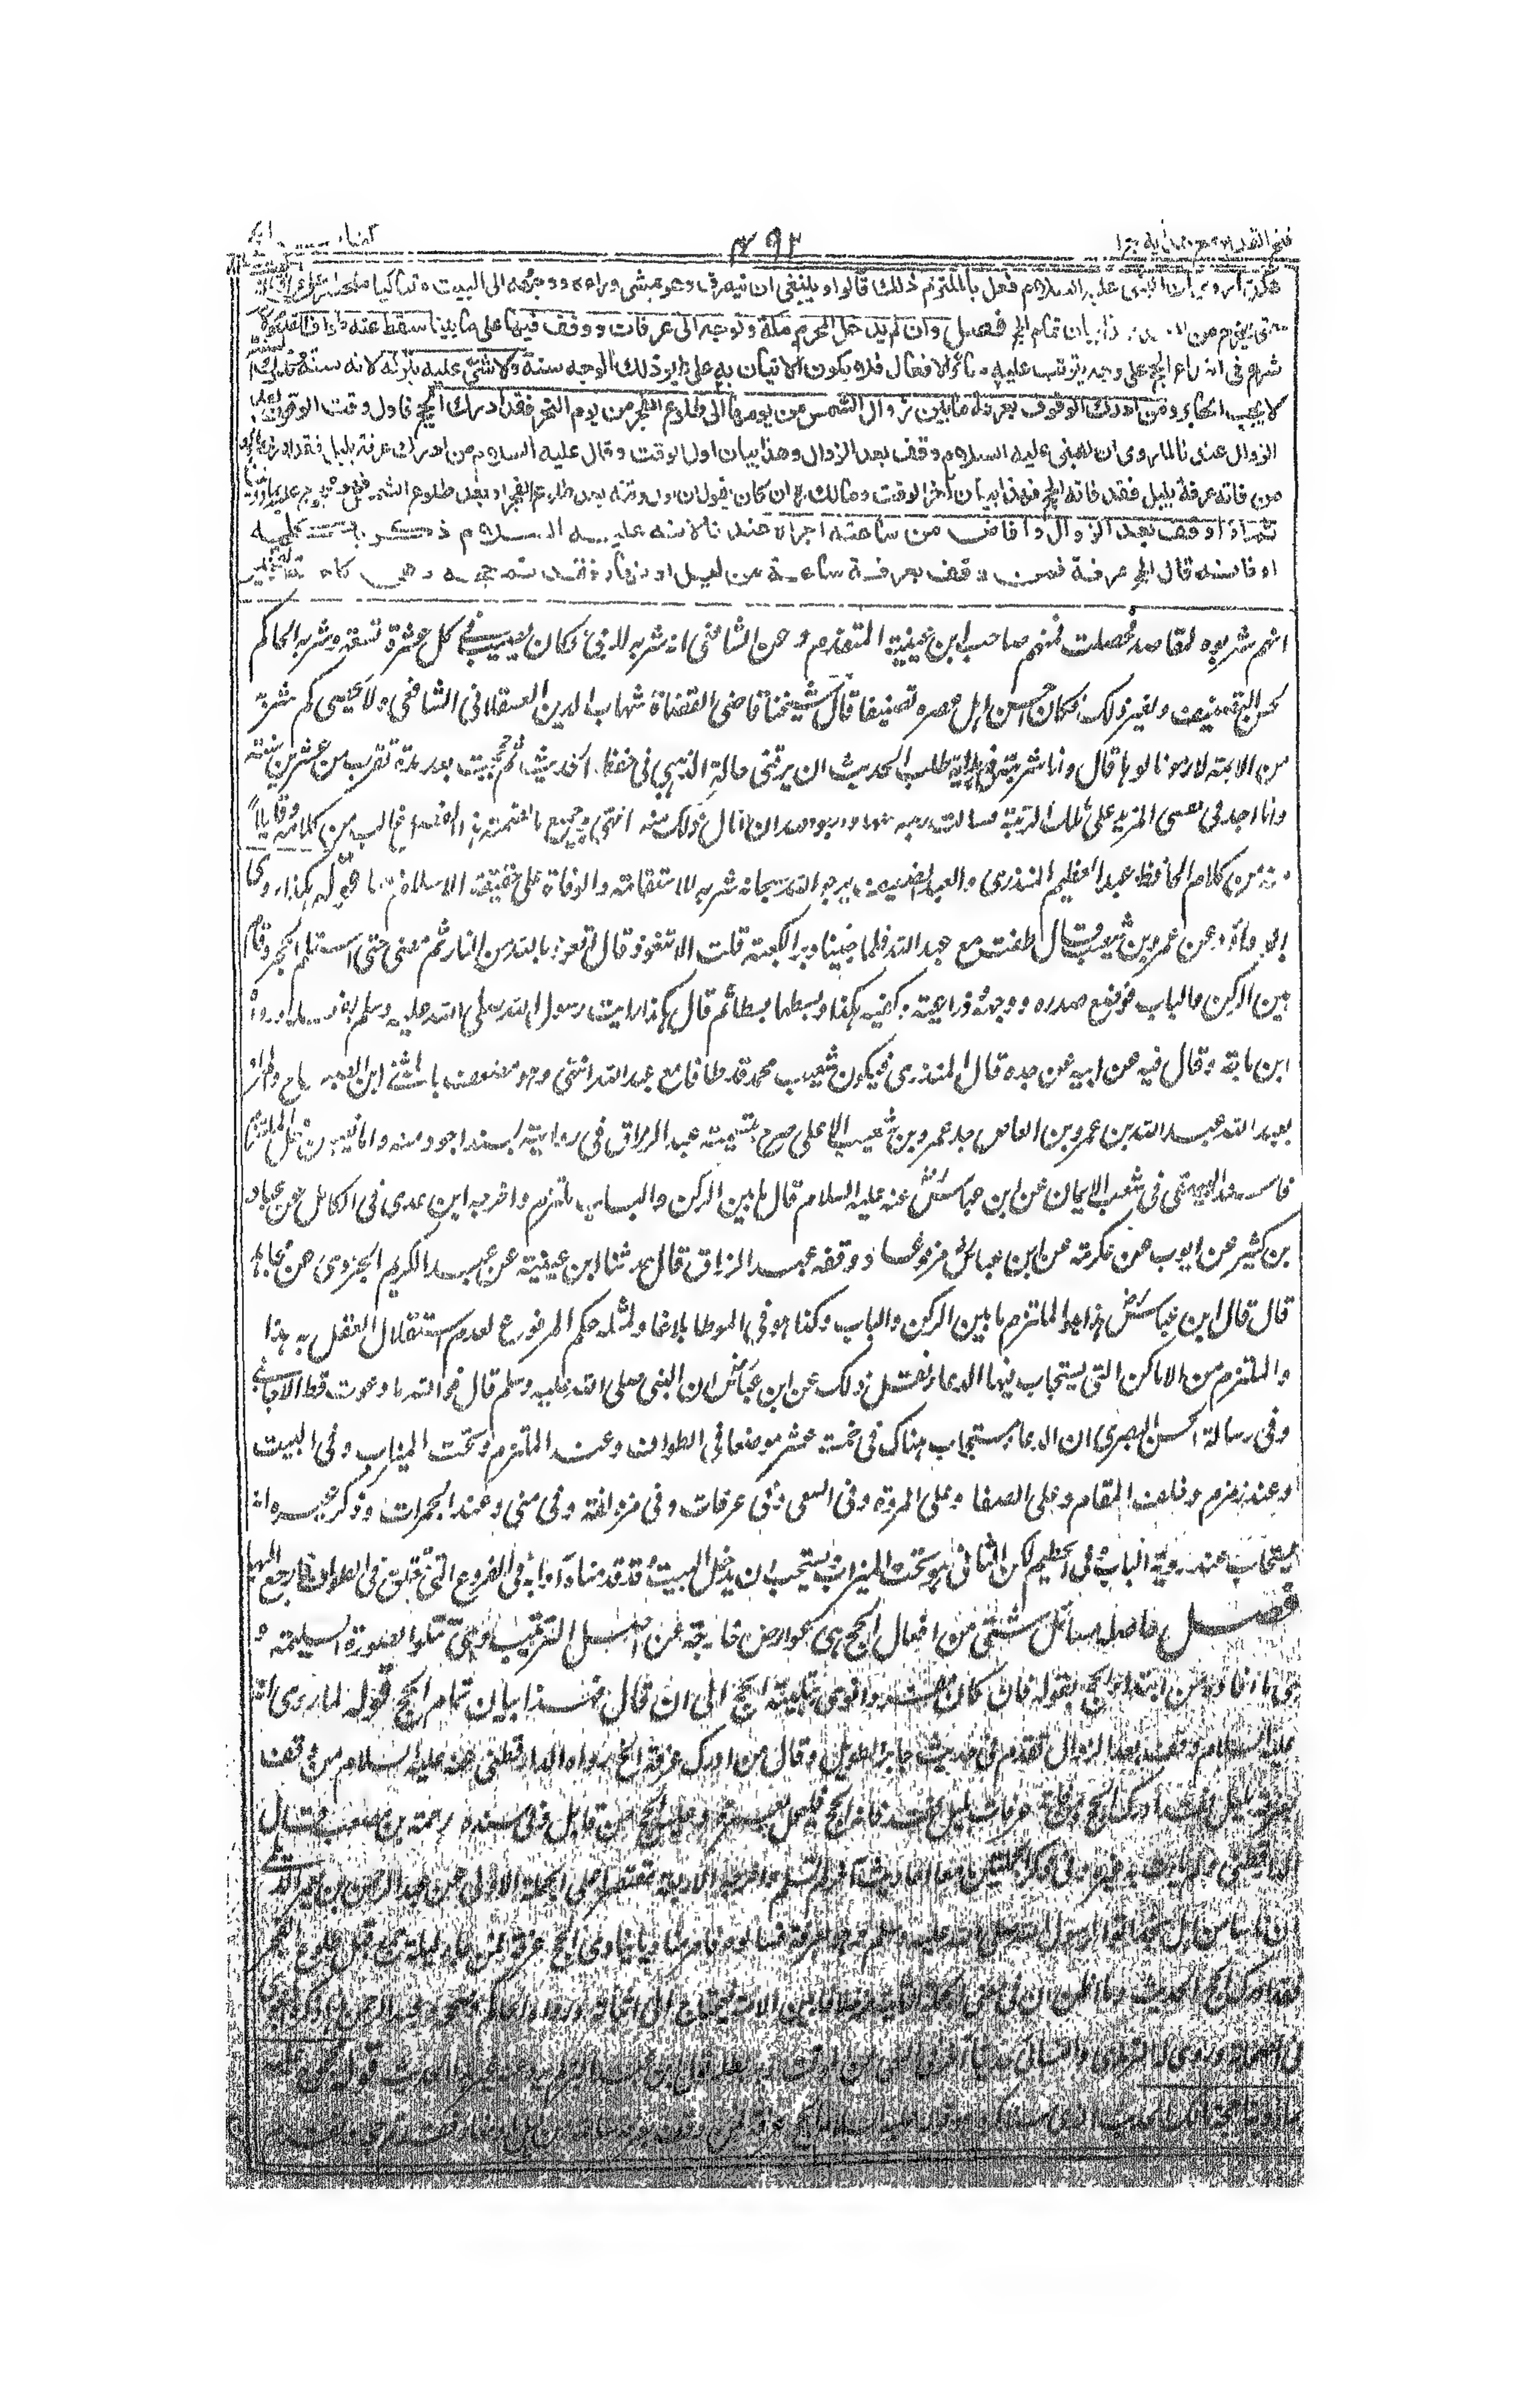 فتح القدير مع هداية ج ١
٣٩٢
كتاب الحج
هكذا روى ان النبى عليه السلام فعل بالملتزم ذلك قالوا وينبغى ان ينصرف وهو يمشى وراءه ووجهه الى البيت متباكيا متحسرا على فراق البيت
حتى يخرج من المسجد فهذا بيان تمام الحج فصل وان لم يدخل المحرم مكة وتوجه الى عرفات ووقف فيها على ما بينا سقط عنه طواف القدوم لانه
شرع فى ابتداء الحج على وجه يترتب عليه سائر الافعال فلا يكون الاتيان به على غير ذلك الوجه سنة ولا شئ عليه بتركه لانه سنة وبترك السنة
لا يجب الجابر ومن ادرك الوقوف بعرفة ما بين زوال الشمس من يومها الى طلوع الفجر من يوم النحر فقد ادرك الحج فاول وقت الوقوف بعد
الزوال عندنا لما روى ان النبى عليه السلام وقف بعد الزوال وهذا بيان اول الوقت وقال عليه السلام من ادرك عرفة بليل فقد ادرك الحج و
من فاته عرفة بليل فقد فاته الحج فهذا بيان آخر الوقت ومالك رح ان كان يقول ان اول وقته بعد طلوع الفجر او بعد طلوع الشمس فهو محجوج عليه بما روينا
ثم اذا وقف بعد الزوال وافاض من ساعته اجزاه عندنا لانه عليه السلام ذكره بكلمة
او فانه قال الحج عرفة فمن وقف بعرفة ساعة من ليل او نهار فقد تم حجه وهى كلمة التخيير
انهم شربوه لمقاصد فحصلت فمنهم صاحب ابن عيينة المتقدم وعن الشافعى انه شربه للرمى فكان يصيب فى كل عشرة تسعة وشربه الحاكم
لحسن التصنيف ولغير ذلك فكان احسن اهل عصره تصنيفا قال شيخنا قاضى القضاة شهاب الدين العسقلانى الشافعى ولا يحصى كم شربه
من الائمة لامور نالوها قال وانا شربته فى بداية طلب الحديث ان يرزقنى حالة الذهبى فى حفظ الحديث ثم حججت بعد مدة تقرب من عشرين سنة
وانا اجد فى نفسى المزيد على تلك الرتبة فسالت رتبة اعلى منها وارجو الله ان انال ذلك منه انتهى وجميع ما تضمنه هذا الفصل غالبه من كلامه وقليلا
منه من كلام الحافظ عبد العظيم المنذرى والعبد الضعيف يرجو الله سبحانه شربه للاستقامة والوفاة على حقيقة الاسلام معها قوله هكذا روى
ابو داؤد عن عمرو بن شعيب قال طفت مع عبد الله فلما جئنا دبر الكعبة قلت الا تتعوذ قال نعوذ بالله من النار ثم مضى حتى استلم الحجر وقام
بين الركن والباب فوضع صدره ووجهه وذراعيه وكفيه هكذا وبسطهما بسطا ثم قال هكذا رايت رسول الله صلى الله عليه وسلم يفعله ورواه
ابن ماجة وقال فيه عن ابيه عن جده قال المنذرى فيكون شعيب ومحمد قد طافا مع عبد الله انتهى وهو مضعف بالمثنى ابن الصباح والمراد
بعبد الله عبد الله بن عمرو بن العاص جد عمرو بن شعيب الاعلى صرح بتسميته عبد الرزاق فى روايته بسند اجود منه واما تعيين محل الملتزم
فاسند البيهقى فى شعب الايمان عن ابن عباس رض عنه عليه السلام قال ما بين الركن والباب ملتزم واخرجه ابن عدى فى الكامل عن عباد
بن كثير عن ايوب عن عكرمة عن ابن عباس رض مرفوعا ووقفه عبد الرزاق قال حدثنا ابن عيينة عن عبد الكريم الجزرى عن مجاهد
قال قال ابن عباس رض هذا الملتزم ما بين الركن والباب وكذا هو فى الموطا بلاغا ولمثله حكم المرفوع لعدم استقلال العقل به هذا
والملتزم من الاماكن التى يستجاب فيها الدعاء نقل ذلك عن ابن عباس رض ان النبى صلى الله عليه وسلم قال فوالله ما دعوت قط الا اجابنى
وفى رسالة الحسن البصرى ان الدعاء مستجاب هناك فى خمسة عشر موضعا فى الطواف وعند الملتزم وتحت الميزاب وفى البيت
وعند زمزم وخلف المقام وعلى الصفا وعلى المروة وفى السعى وفى عرفات وفى مزدلفة وفى منى وعند الجمرات وذكر غيره انه
يستجاب عند روية البيت وفى الحطيم لكن الثانى هو تحت الميزاب ويستحب ان يدخل البيت وقد قدمنا آدابه فى الفروع التى تتعلق فى الطواف فارجع اليها
فصل حاصله مسائل شتى من افعال الحج هى عوارض خارجة عن اصل الترتيب وهى تتلو الصورة السليمة و
هى ما افاده من ابتداء الحج بقوله فان كان مفردا نوى بتلبيته الحج الى ان قال فهذا بيان تمام الحج قوله لما روى انه
عليه السلام وقف بعد الزوال تقدم فى حديث جابر الطويل وقال من ادرك عرفة الخ رواه الدارقطنى عنه عليه السلام من وقف
بعرفة بليل فقد ادرك الحج ومن فاته عرفات بليل فقد فاته الحج فليحل بعمرة وعليه الحج من قابل وفى سنده رحمة بن مصعب قال
الدارقطنى ولم يات به غيره وفى ذكر الجملتين معا احاديث اخر لم تسلم واخرج الاربعة مقتصرا على الجملة الاولى عن عبد الرحمن بن يعمر الديلى
ان ناسا من اهل نجد اتوا رسول الله صلى الله عليه وسلم وهو بعرفة فسالوه فامر مناديا ينادى الحج عرفة فمن جاء ليلة جمع قبل طلوع الفجر
فقد ادرك الحج الحديث